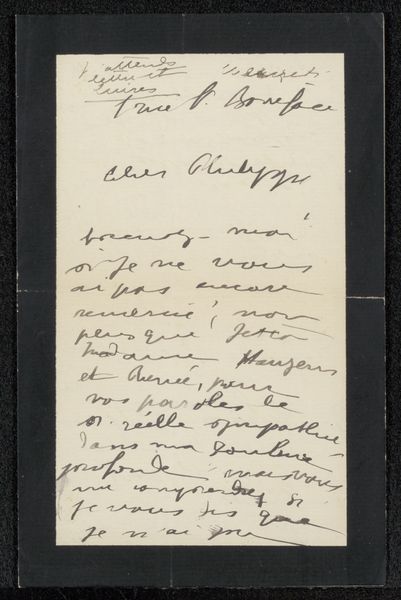 j'attends
lettre et
1 rue St. Boniface
cher Philippe
excusez-moi
si je ne vous
ai pas encore
remercié, non
plus que
Madame
et René, pour
vos paroles de
si réelle sympathie
dans ma douleur
profonde mais vous
me comprendrez si
je vous dis que
je n'ai pu